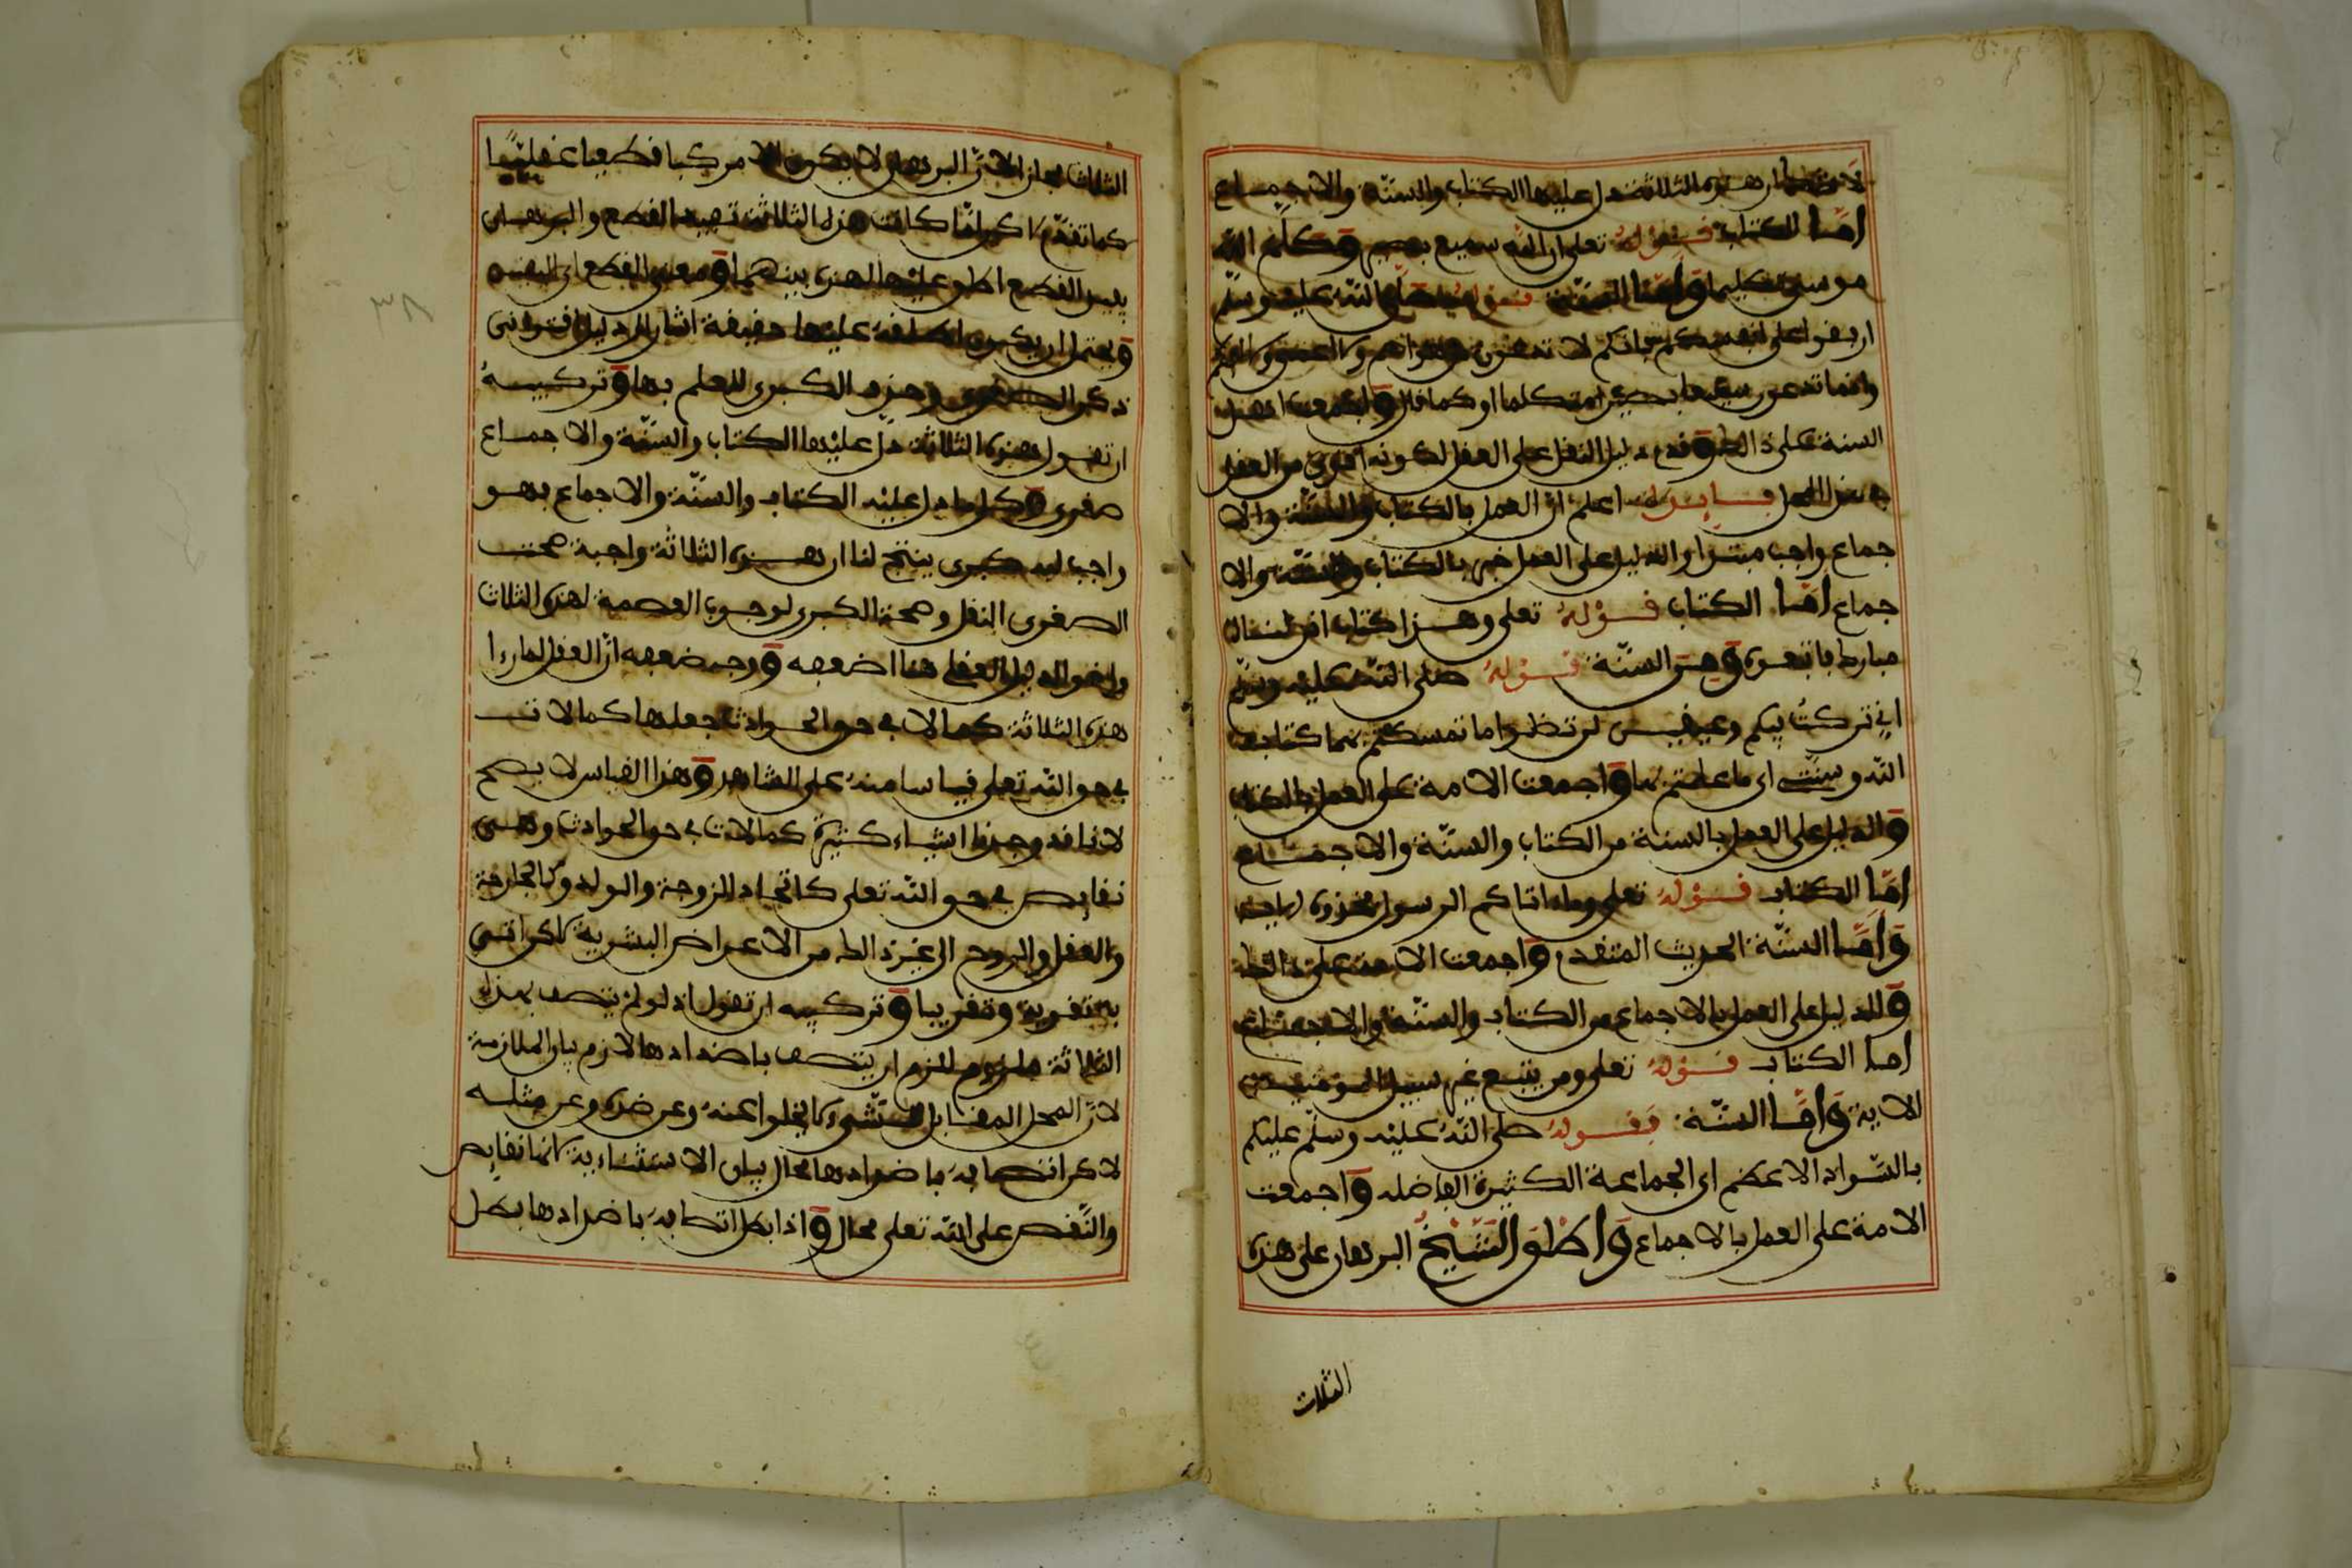 ان هذه الثلاثة دل عليها الكتاب والسنة والاجماع
اما الكتاب فقوله تعلى ان الله سميع بصير وكلم الله
موسى تكليما واما السنة فقوله صلى الله عليه وسلم
اربعوا على انفسكم فانكم لا تدعون
وانما تدعون سميعا بصيرا متكلما او كما قال واجمعت اهل
السنة على ذالك وقدم دليل النقل على العقل لكونه اقوى من العقل
في هذا المحل فايدة اعلم ان العمل بالكتاب والسنة والا
جماع واجب مبتدا والدليل على العمل خبر بالكتاب والسنة والا
جماع اما الكتاب فقوله تعلى وهذا كتاب انزلناه
مبارك فاتبعوه وهي السنة قوله صلى الله عليه وسلم
اني تركت فيكم لن تضلوا ما تمسكتم بهما كتاب
الله وسنتي اي ما عملتم بهما واجمعت الامة على العمل بالكتاب
والدليل على العمل بالسنة من الكتاب والسنة والاجماع
اما الكتاب فقوله تعلى وما اتاكم الرسول فخذوه
واما السنة الحديث المتقدم واجمعت الامة على ذالك
والدليل على العمل بالاجماع من الكتاب والسنة والاجماع
اما الكتاب فقوله تعلى ومن يتبع غير سبيل المومنين
الاية واما السنة فقوله صلى الله عليه وسلم عليكم
بالسواد الاعظم اي الجماعة الكثيرة الفاضله واجمعت
الامة على العمل بالاجماع واطلق الشيخ البرهان على هذه
الثلاث
الثلاث مجاز لان البرهان لا يكون الا مركبا قطعيا عقليا
كما تقدم لاكن لما كانت هذه الثلاثة تفيد القطع والبرهان
يفيد القطع اطلق عليها بينهما ومعنى القطع اي اليقين
ويحتمل ان يكون اطلقه عليها حقيقة اشار الى دليل اقتراني
ذكر الصغرى وحذف الكبرى للعلم بها وتركيبه
ان تقول هذه الثلاثة دل عليها الكتاب والسنة والاجماع
صغرى وكل ما دل عليه الكتاب والسنة والاجماع فهو
واجب لله كبرى ينتج لنا ان هذه الثلاثة واجبة صحت
الصغرى النقل وصحة الكبرى لوجوب العصمة لهذه الثلاث
والدليل العقلي هنا اضعفه ووجه ضعفه ان العقل لما رءا
هذه الثلاثة كمالا في حق الحوادث جعلها كمالات
في حق الله تعلى قياسا منه على الشاهد وهذا القياس لا يصح
لانا قد وجدنا اشياء كثيرة كمالات في حق الحوادث وهي
نقايص في حق الله تعلى كاتخاد الزوجة والولد وكالجارحة
والعقل والروح الى غير ذالك من الاعراض البشرية لاكن اتى
به تقوية وتقريبا وتركيبه ان تقول اذ لو لم يتصف بهذه
الثلاثة ملزوم للزم ان يتصف باضدادها لازم بيان الملازمة
لان المحل القابل للشيء لا يخلوا عنه وعن ضده وعن مثله
لاكن اتصافه باضدادها محال بيان الاستثناءية لانها نقايص
والنقص على الله تعلى محال واذا بطل اتصافه باضدادها بطل
٣٨